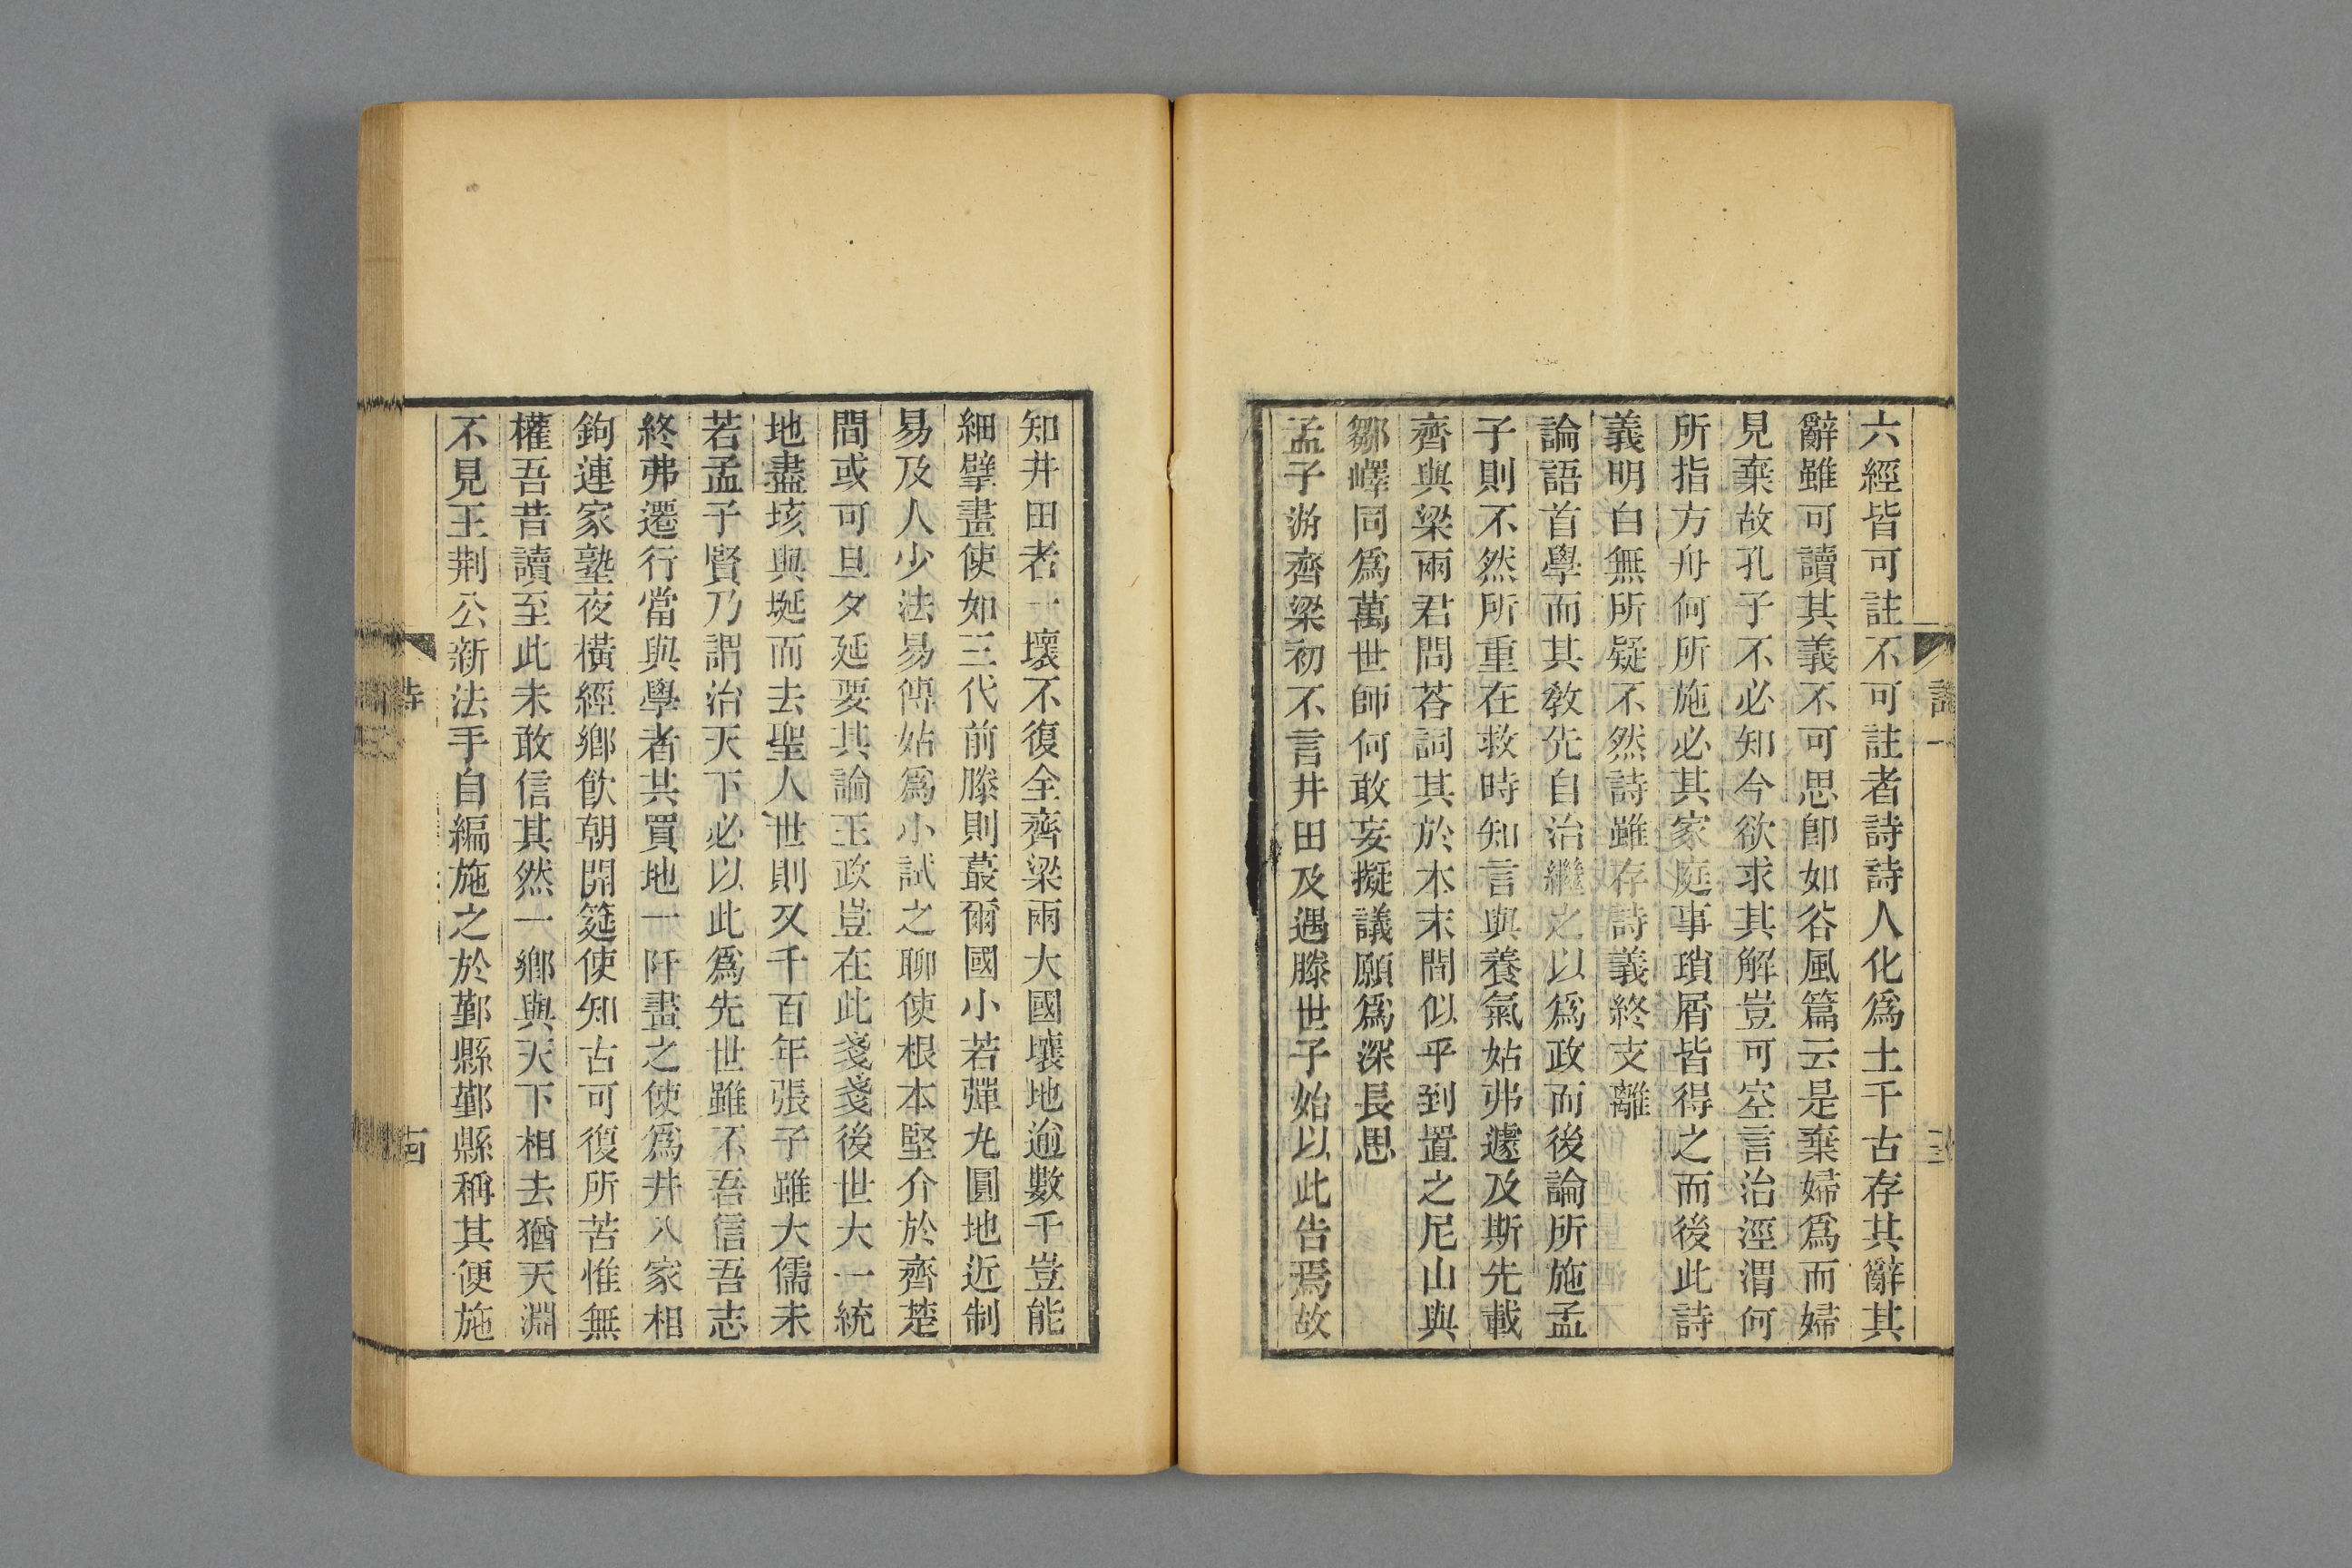 六經皆可註不可註者詩詩人化爲土千古存其辭其
辭雖可讀其義不可思卽如谷風篇云是棄婦爲而婦
見棄故孔子不必知今欲求其解豈可空言治涇渭何
所指方舟何所施必其家庭事瑣屑皆得之而後此詩
義明白無所疑不然詩雖存詩義終支離
論語首學而其敎先自治繼之以爲政而後論所施孟
子則不然所重在救時知言與養氣姑弗遽及斯先載
齊與梁兩君問荅詞其於本末間似乎到置之尼山與
鄒嶧同爲萬世師何敢妄擬議願爲深長思
孟子游齊梁初不言井田及遇滕世子始以此告焉故
知井田者一壞不復全齊梁兩大國壤地逾數千豈能
細擘畫使如三代前滕則蕞爾國小若彈丸圓地近制
易及人少法易傳姑爲小試之聊使根本堅介於齊楚
間或可旦夕延要其論王政豈在此戔戔後世大一統
地盡垓與埏而去聖人世則又千百年張子雖大儒未
若孟子賢乃謂治天下必以此爲先世雖不吾信吾志
終弗遷行當與學者共買地一阡畫之使爲井八家相
鉤連家塾夜橫經鄕飮朝開筵使知古可復所苦惟無
權吾昔讀至此未敢信其然一鄕與天下相去猶天淵
不見王荆公新法手自編施之於鄞縣鄞縣稱其便施